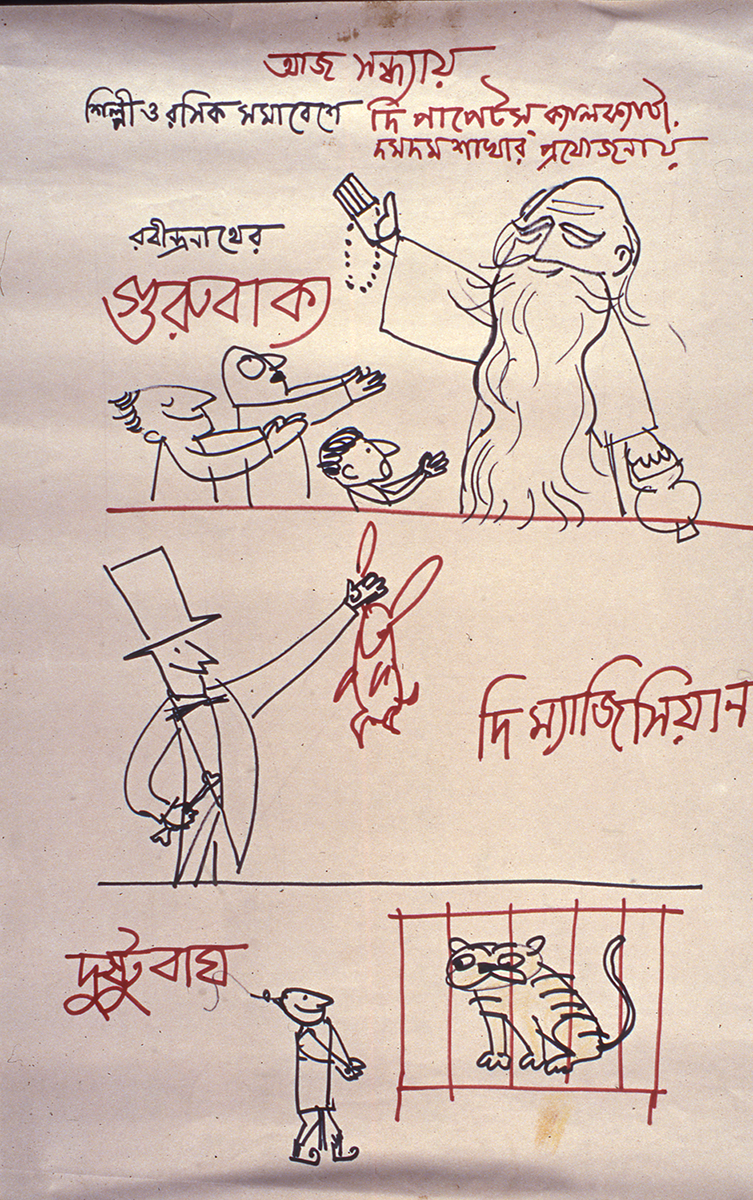 আজ সন্ধ্যায়
শিল্পী ও রসিক সমাবেশে দি পাপেটস্, ক্যালকাটা,
দমদম শাখার প্রযোজনায়
রবীন্দ্রনাথের
গুরুবাক্য
দি ম্যাজিসিয়ান
দুষ্টু বাঘ